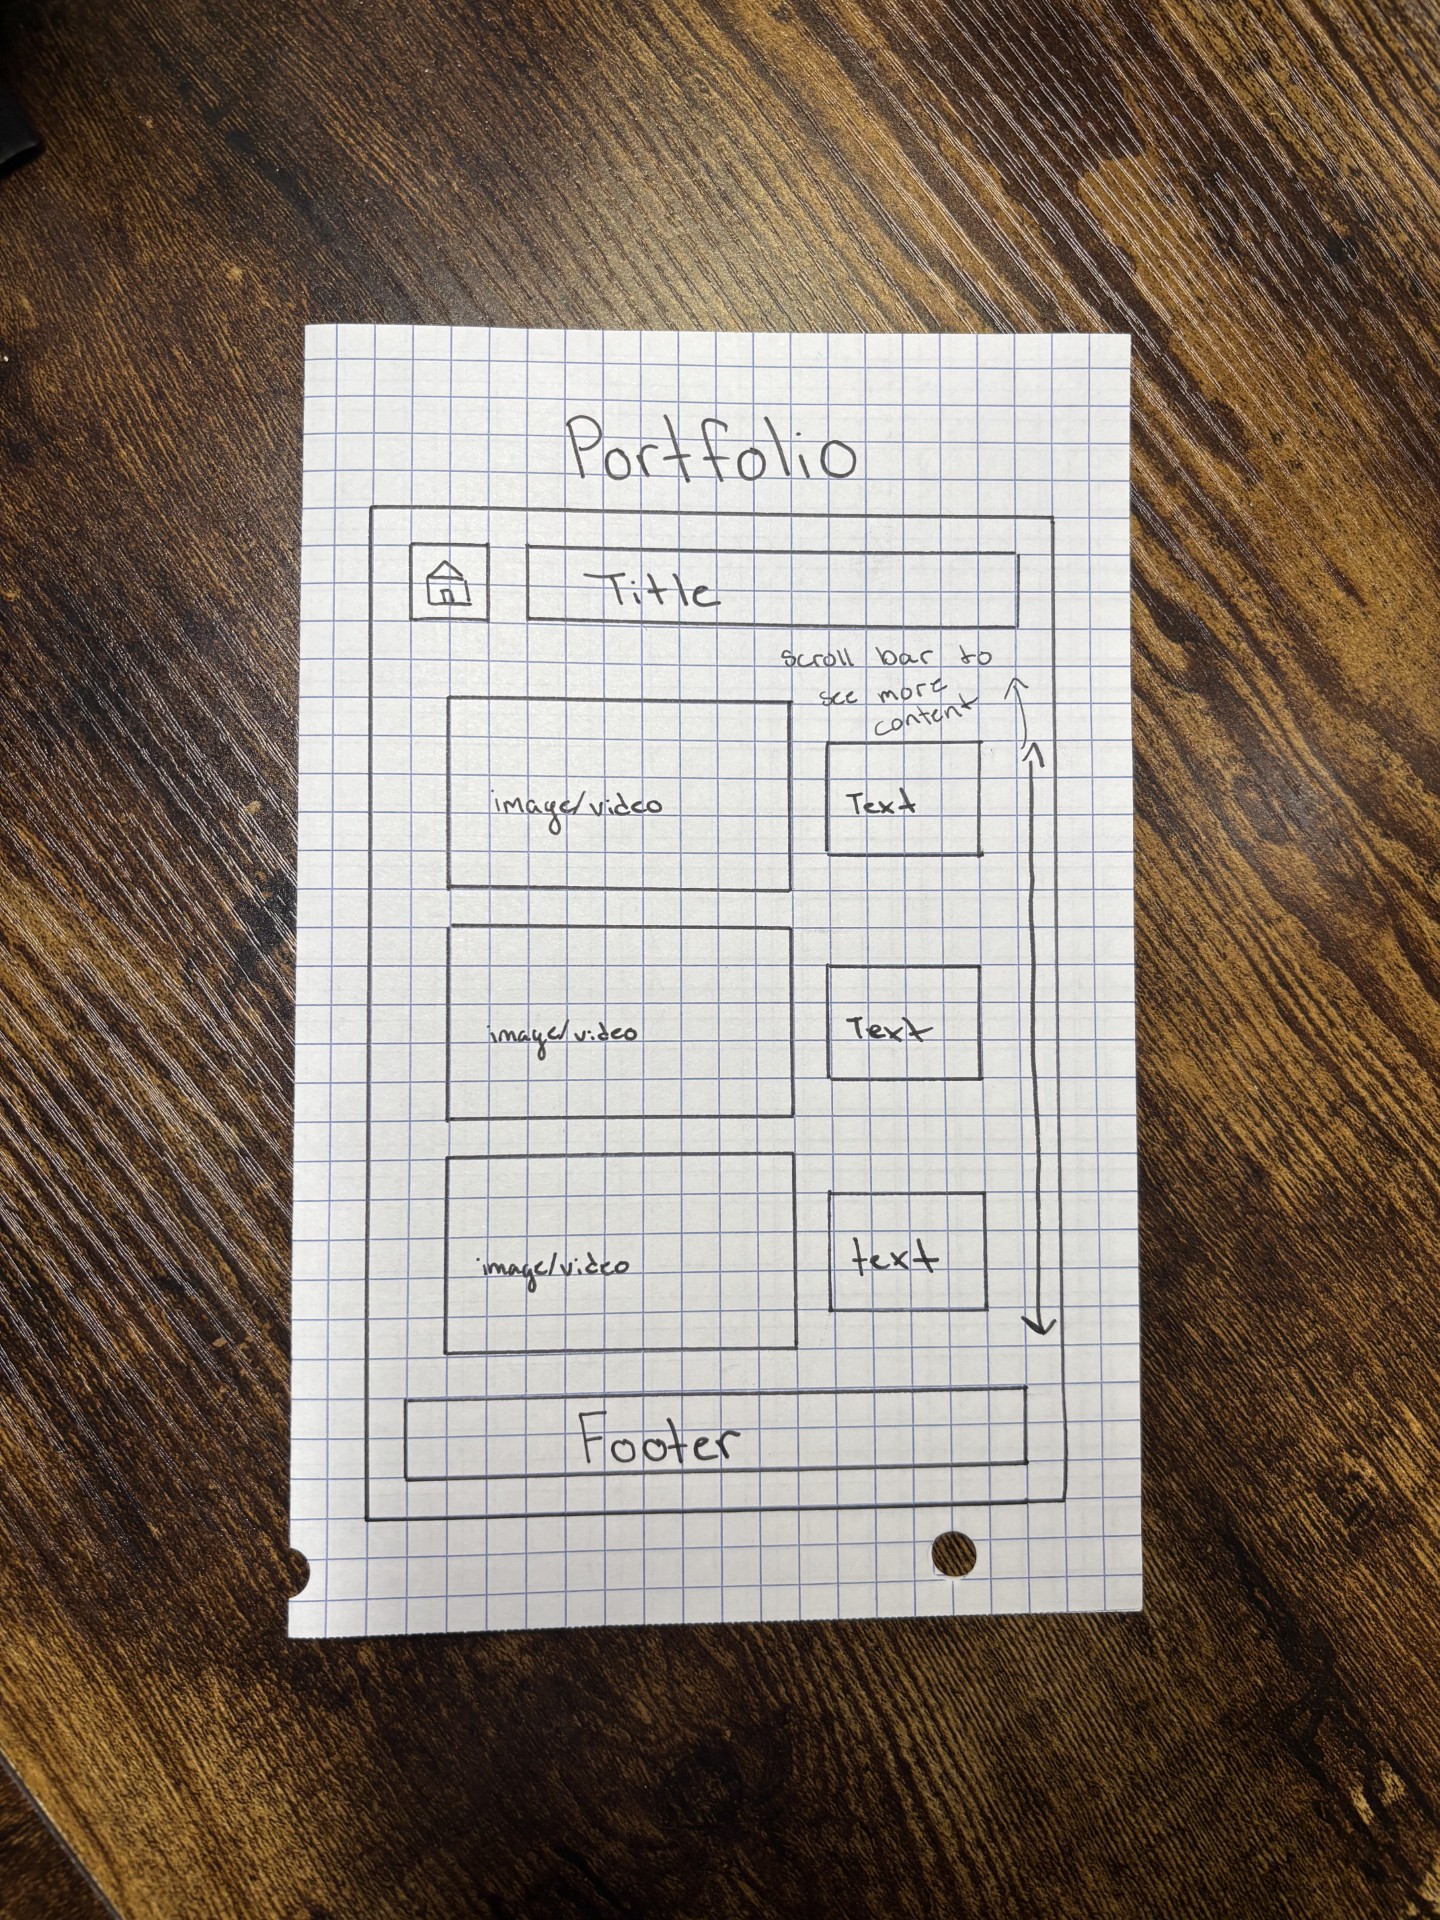 Portfolio
Title
scroll bar to
see more
content
image/video
Text
image/video
Text
image/video
text
Footer